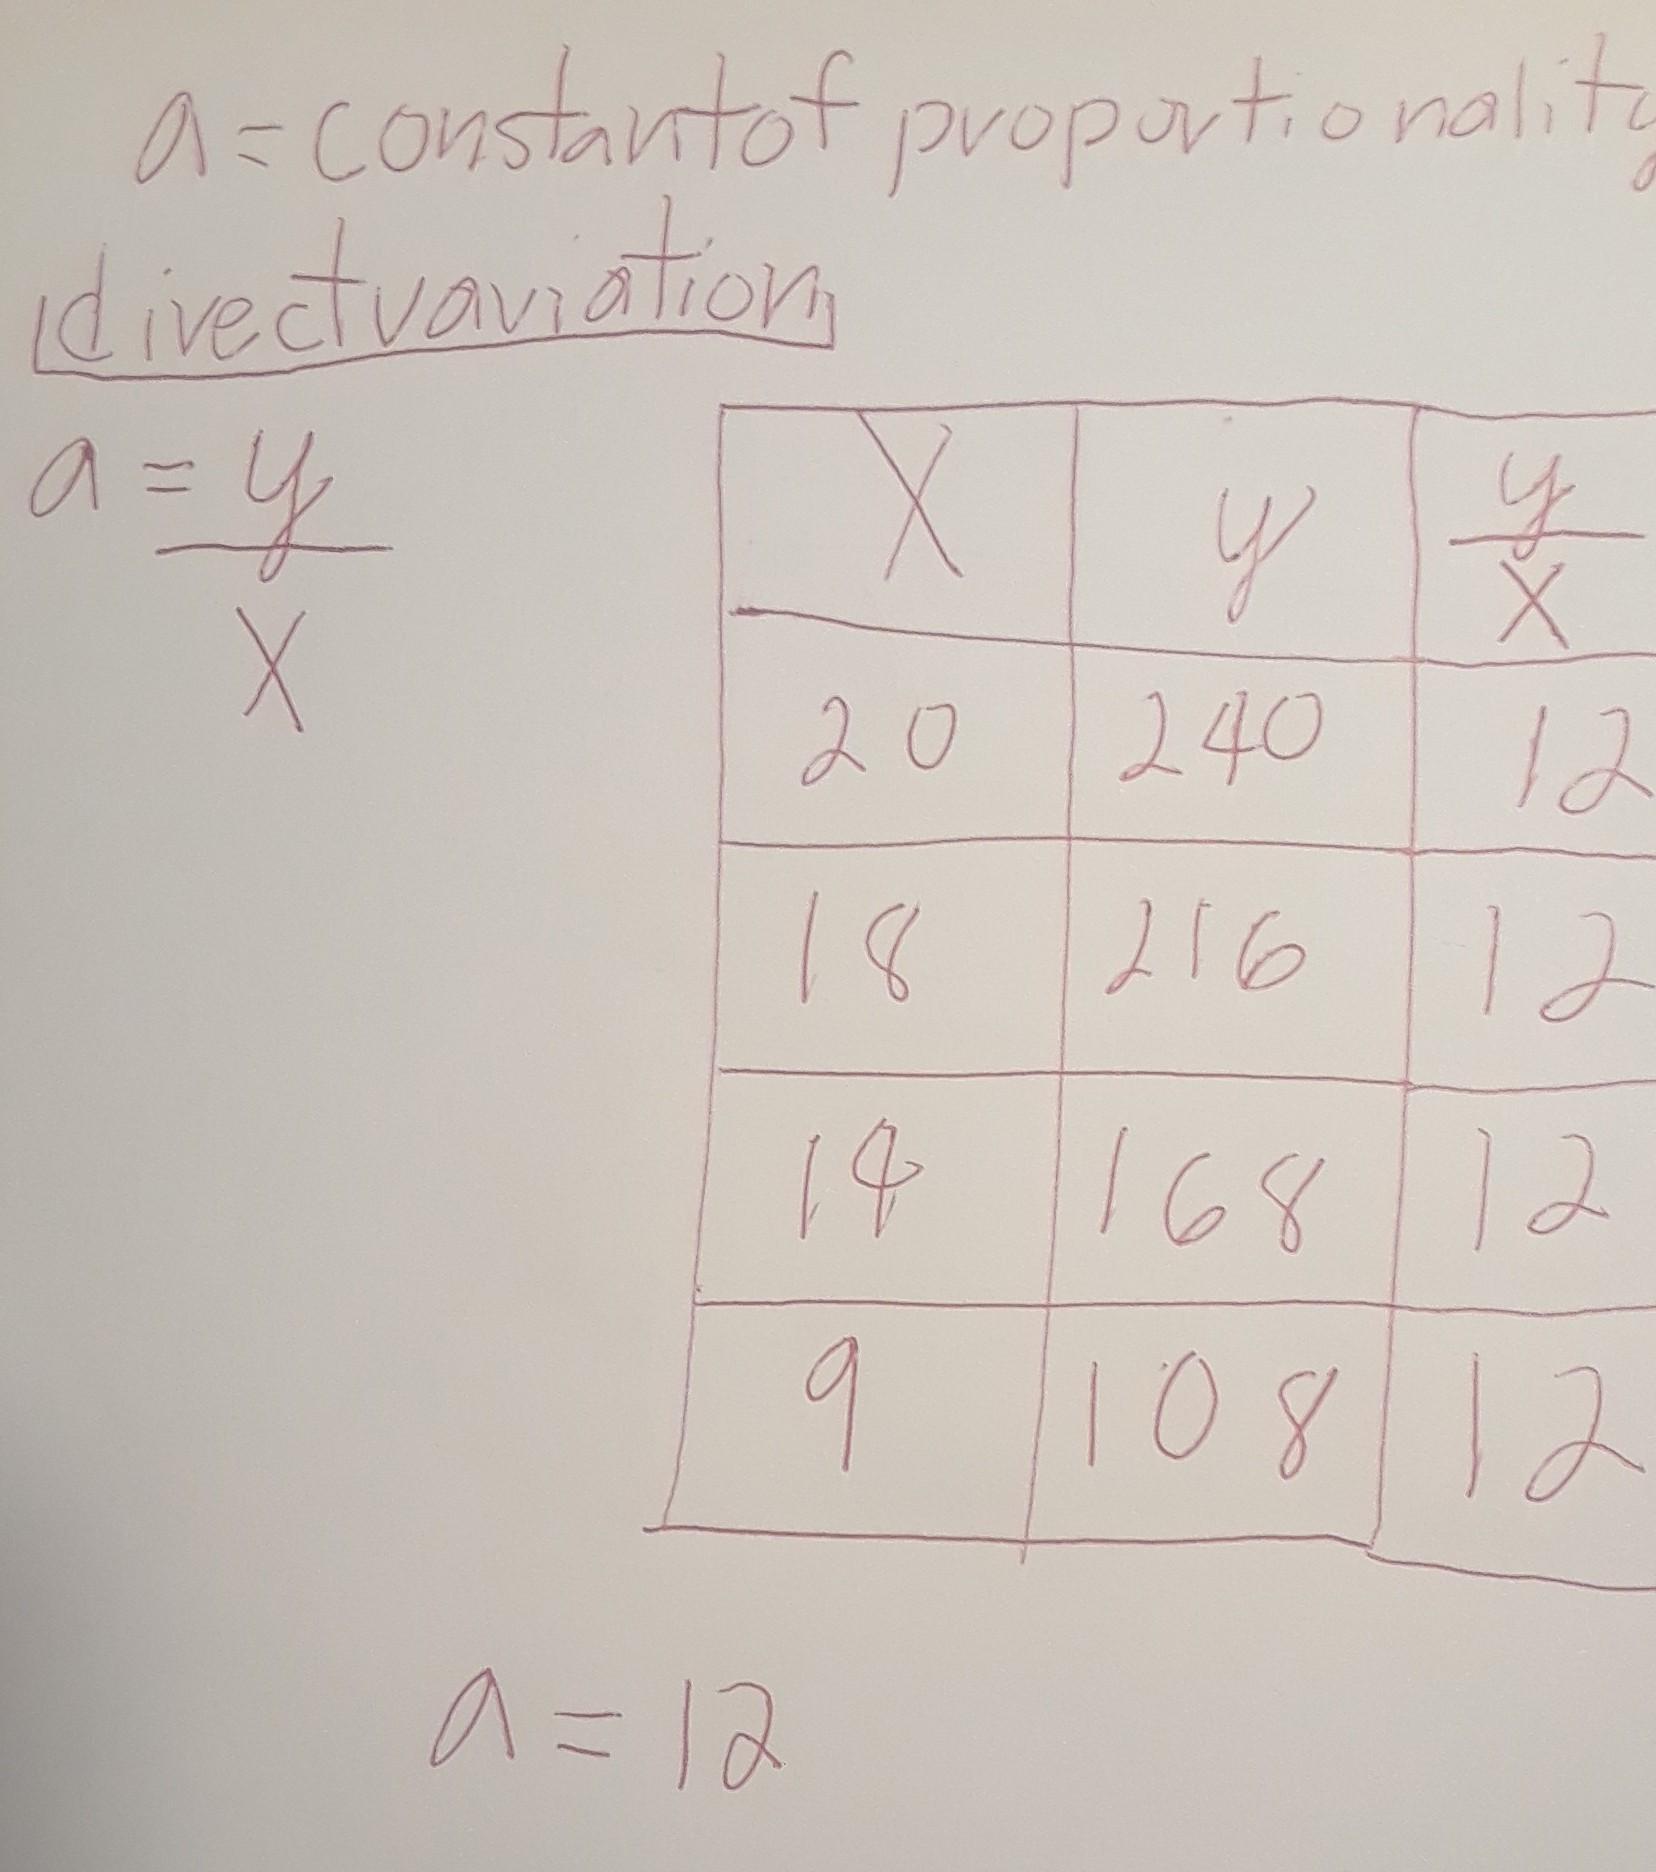 a = constant of proportionality
direct variation
a = y
x
x y y
x
20 240 12
18 216 12
14 168 12
9 108 12
a = 12